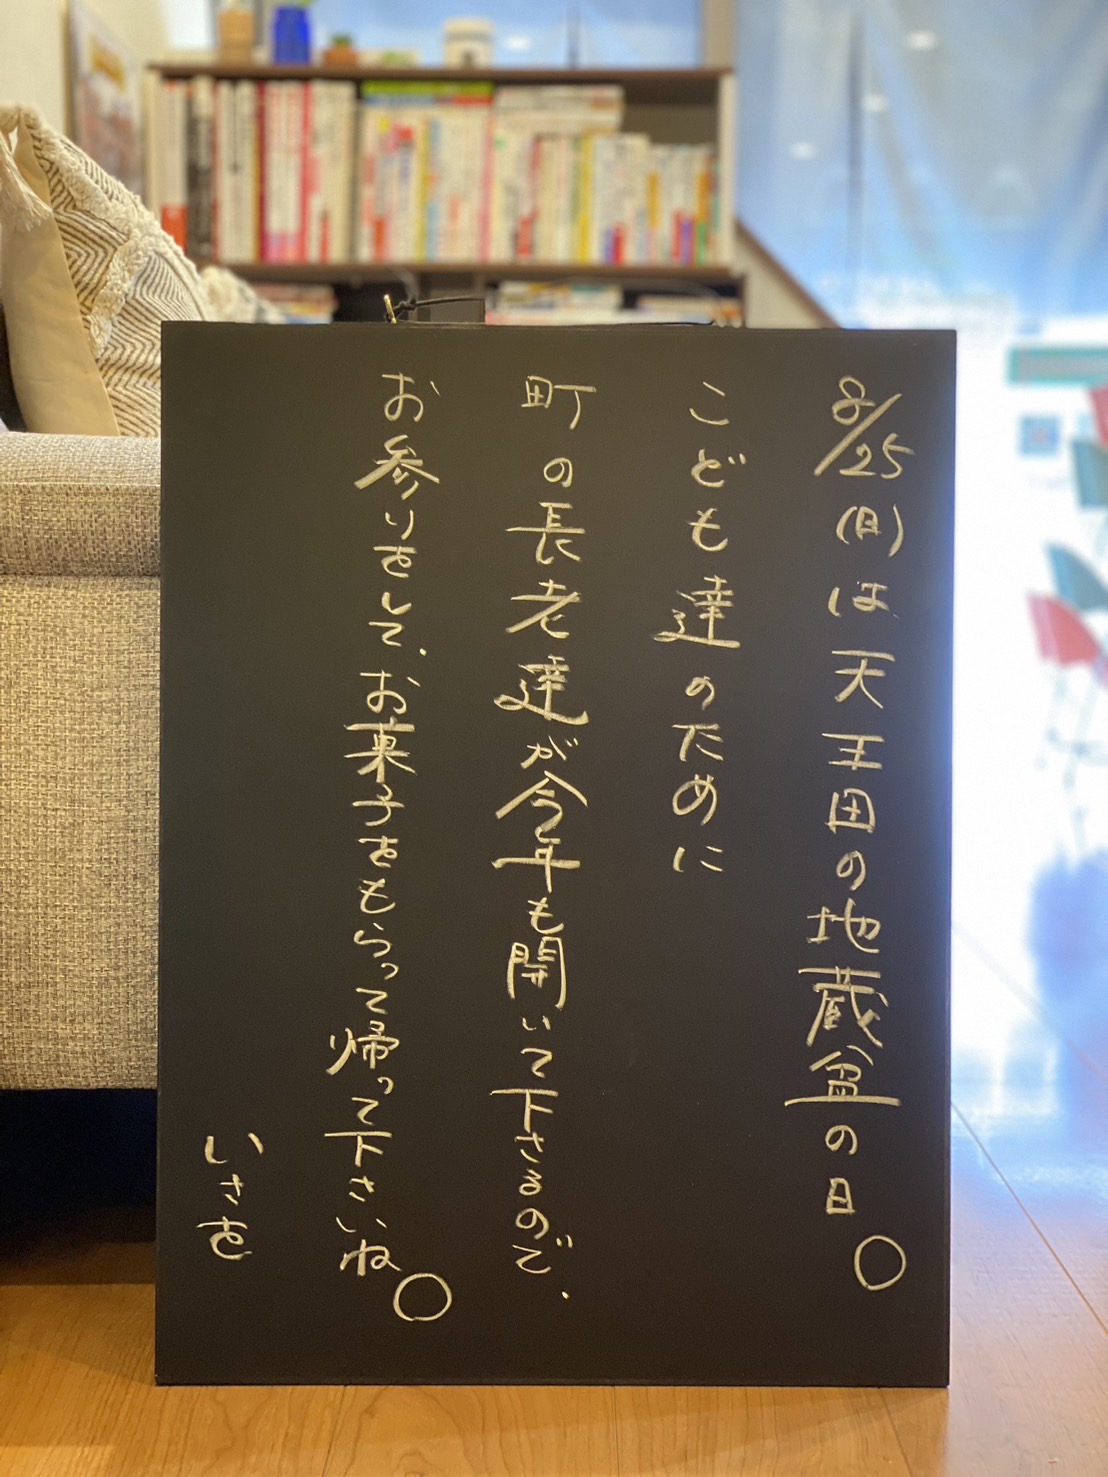 8/25(日)は天王田の地蔵盆の日。
こども達のために
町の長老達が今年も開いて下さるので、
お参りをして、お菓子をもらって帰って下さいね。
いさを